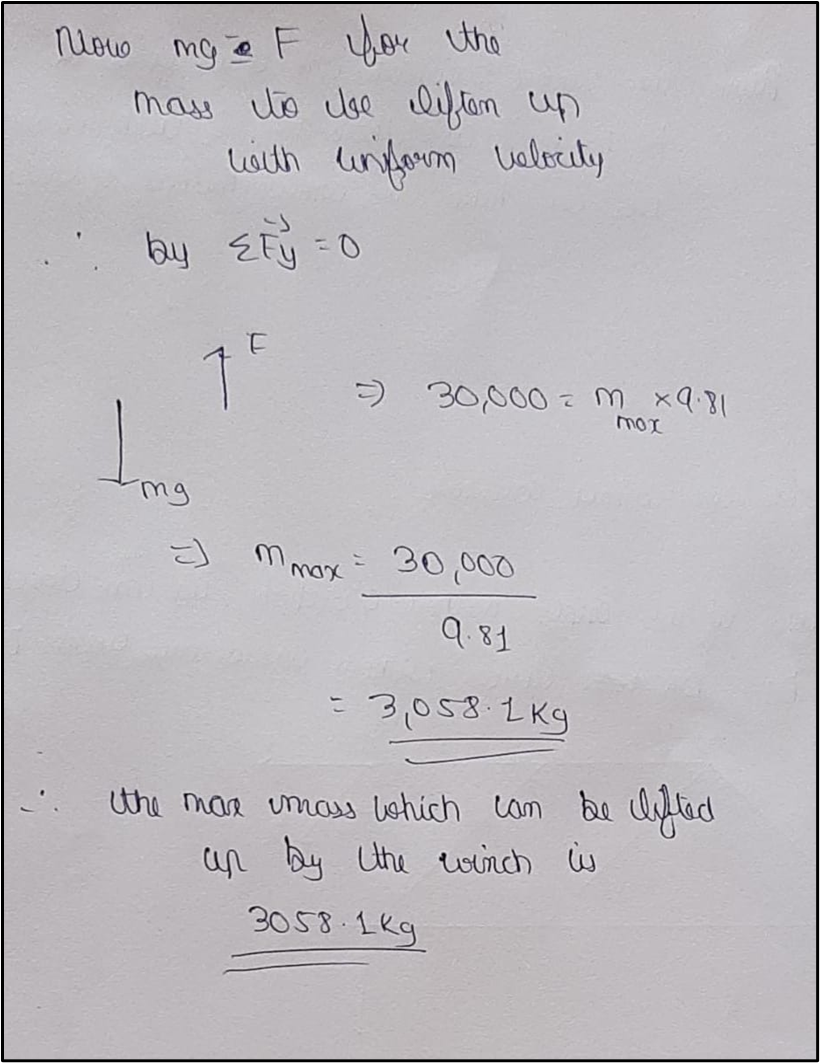 Now mg = F for the
mass to be liften up
with uniform velocity
∴ by ΣFy = 0
F
⇒ 30,000 = m max × 9.81
mg
⇒ m max = 30,000
9.81
= 3,058.1 Kg
∴ the max mass which can be lifted
up by the winch is
3058.1 Kg